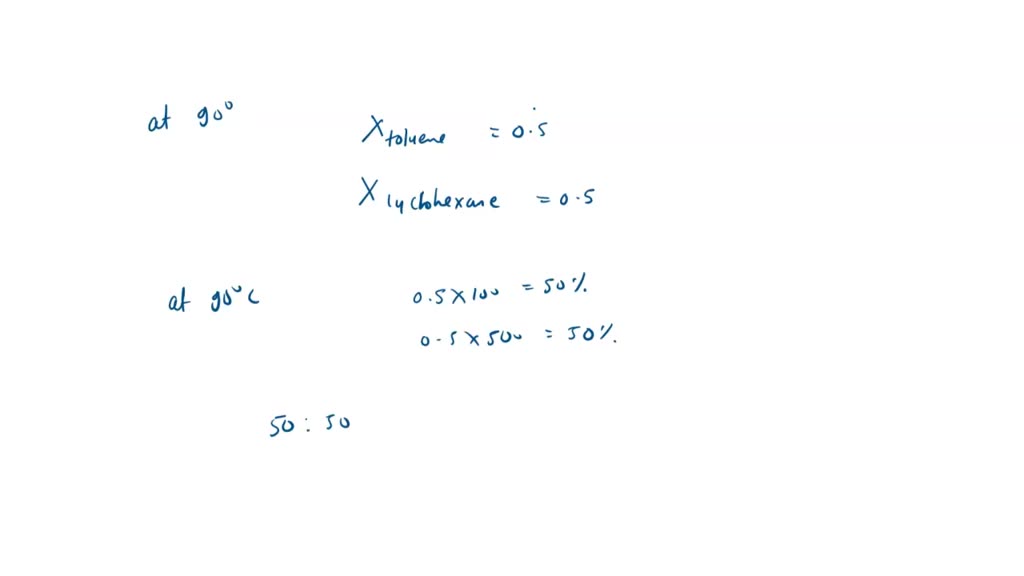 at 90°
X toluene = 0.5
X cyclohexane = 0.5
at 90°C
0.5 × 100 = 50%
0.5 × 500 = 50%.
50 : 50